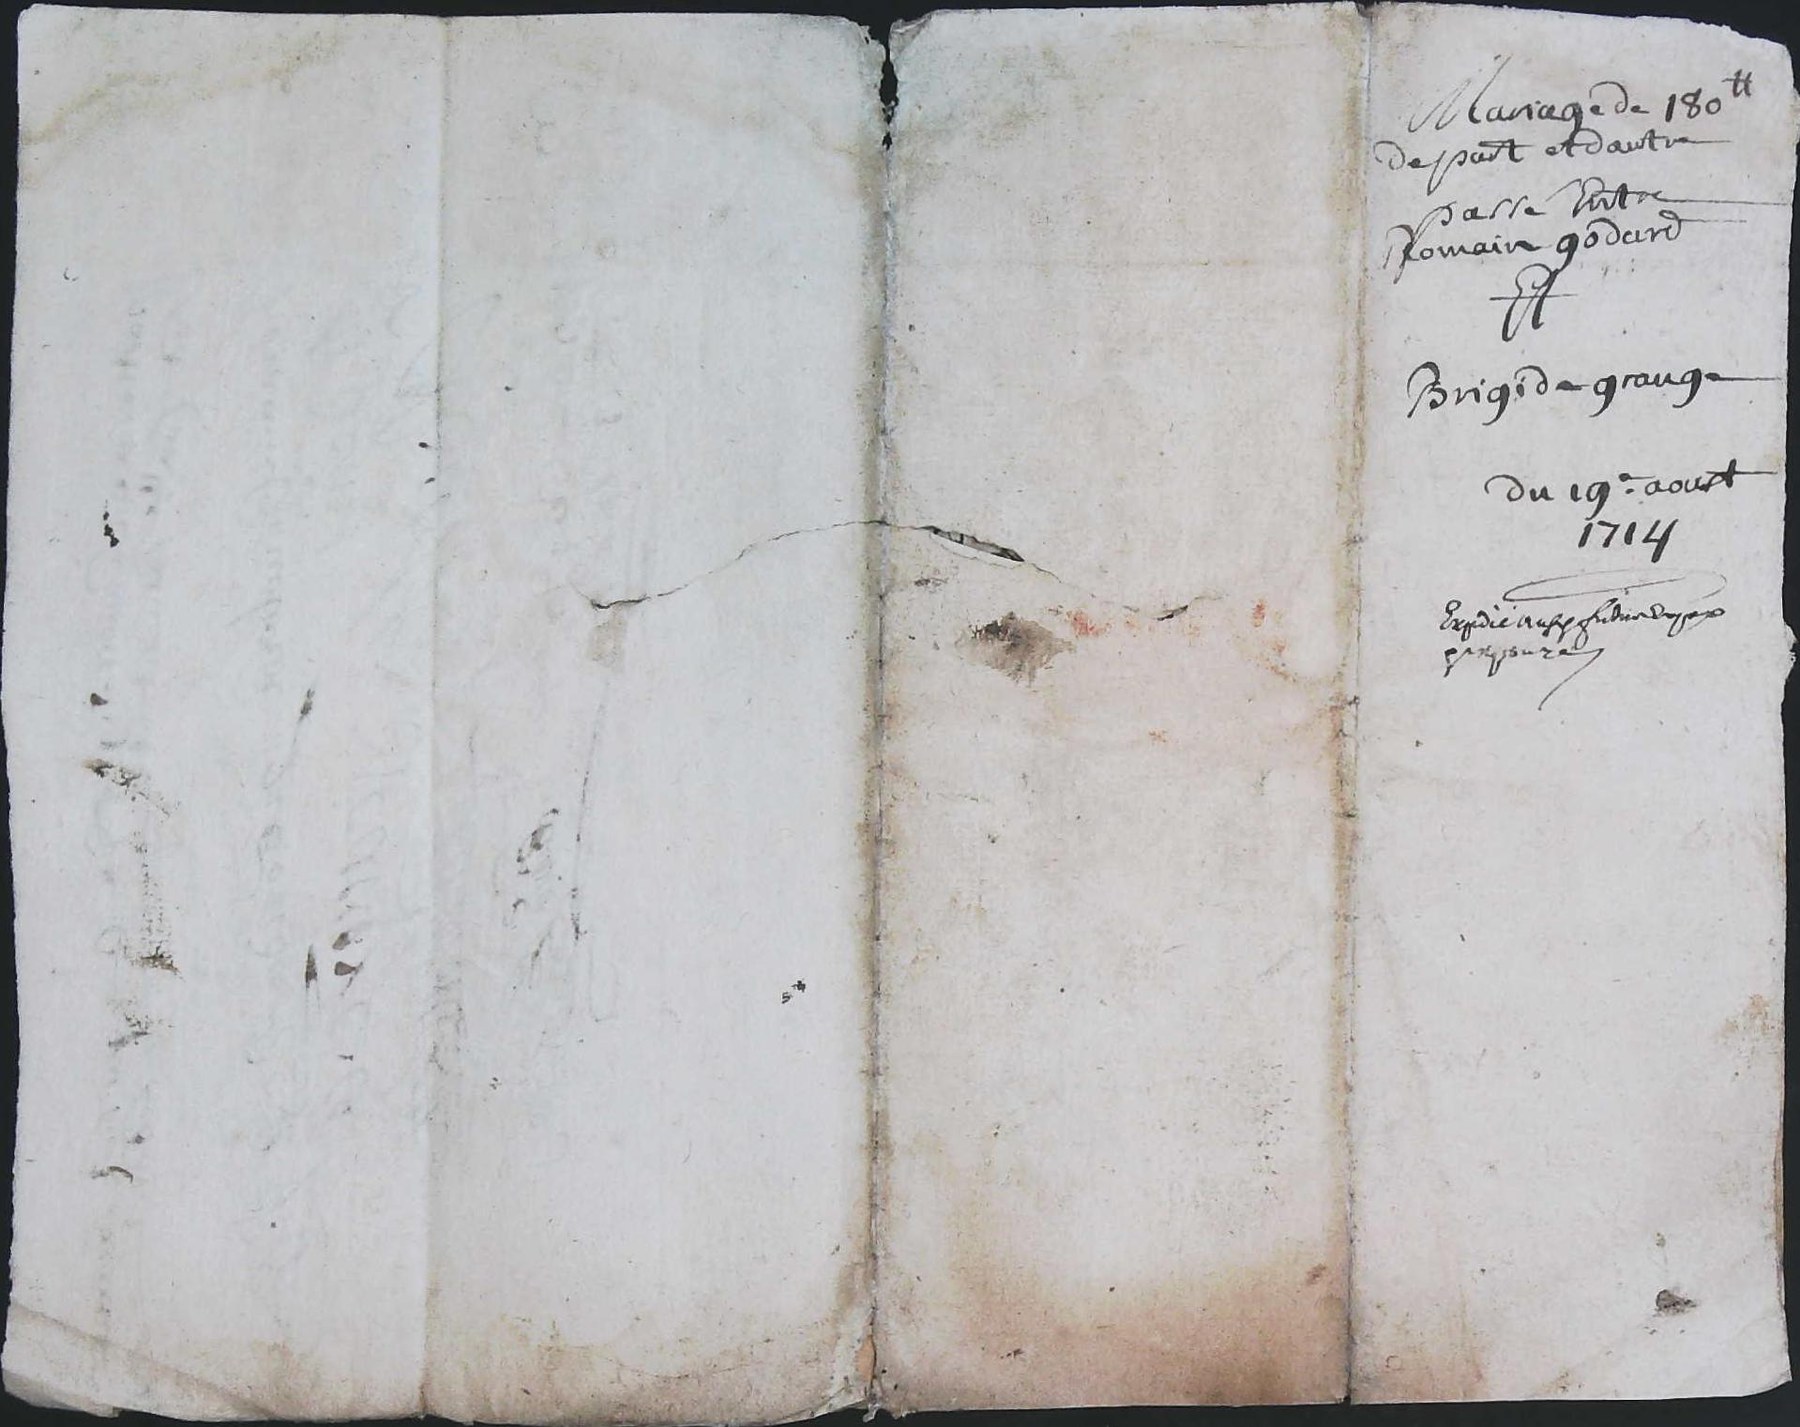 Mariage de 180tt
de part et dautre
passe Entre
Romain godard
Et
Brigide grange
du 19e aoust
1714
Expedié